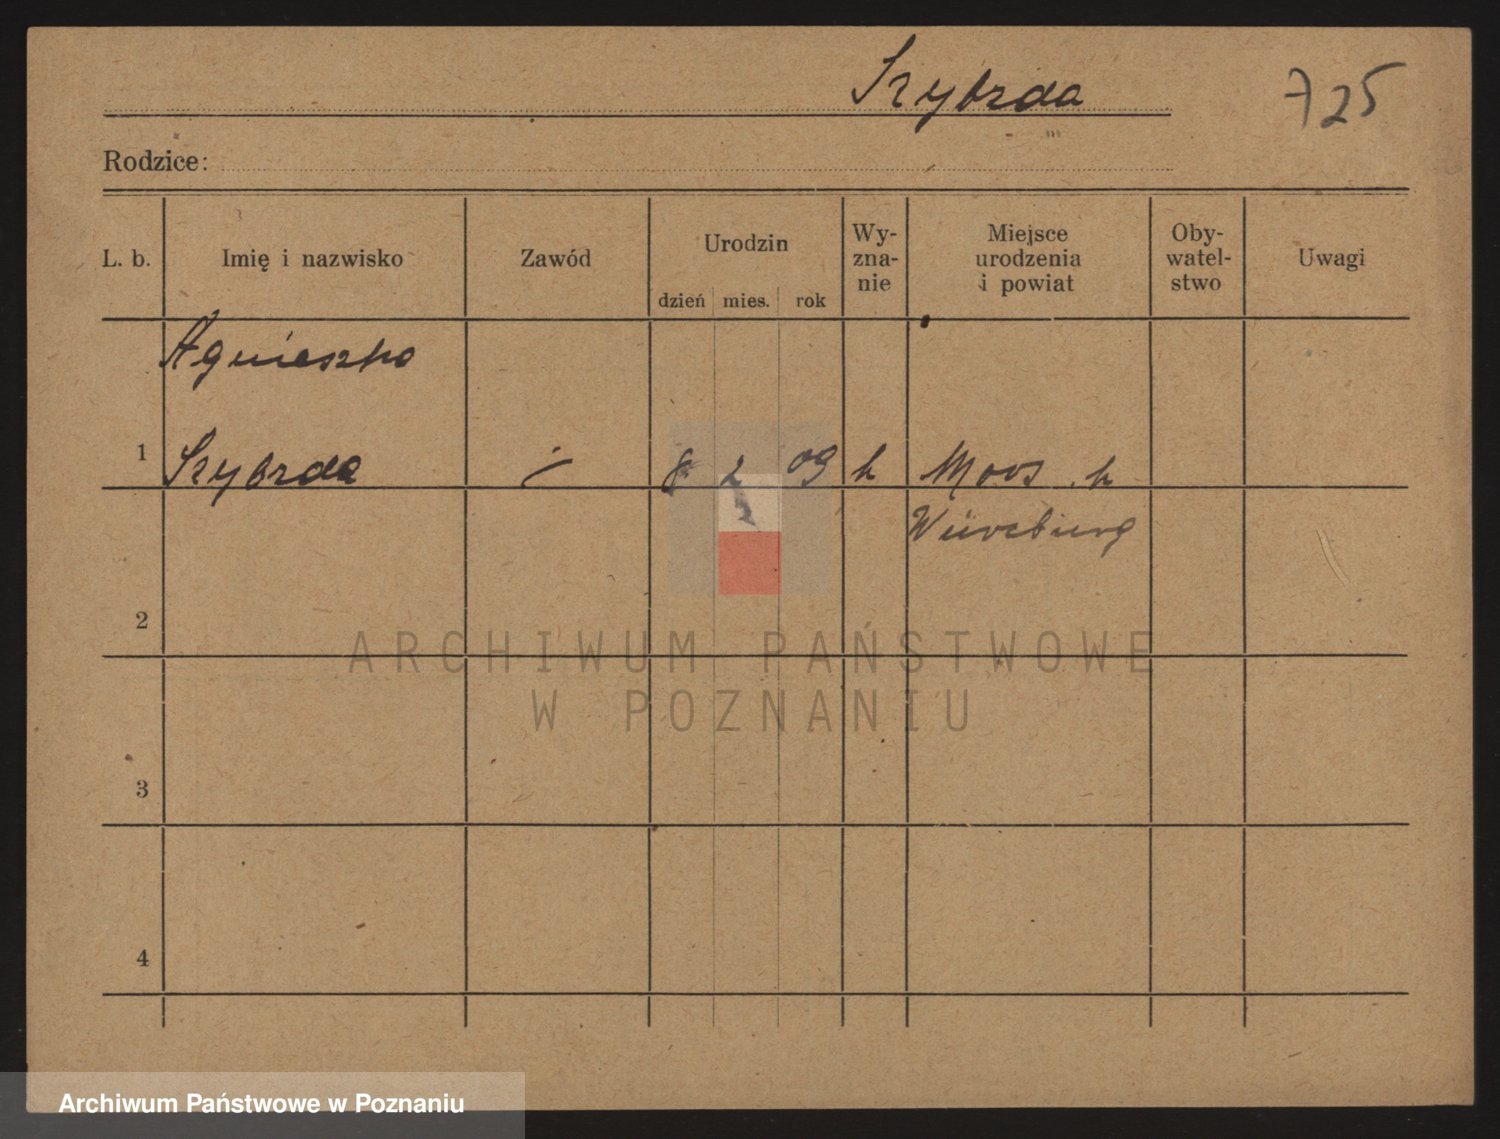 Szybzda
725
Rodzice:
L. b.
Imię i nazwisko
Zawód
Urodzin
dzień mies. rok
Wy-
zna-
nie
Miejsce
urodzenia
i powiat
Oby-
watel-
stwo
Uwagi
Agnieszka
1 Szybzda 8 2 09 k Moos k
Würzburg
2
3
4
ARCHIWUM PAŃSTWOWE
W POZNANIU
Archiwum Państwowe w Poznaniu